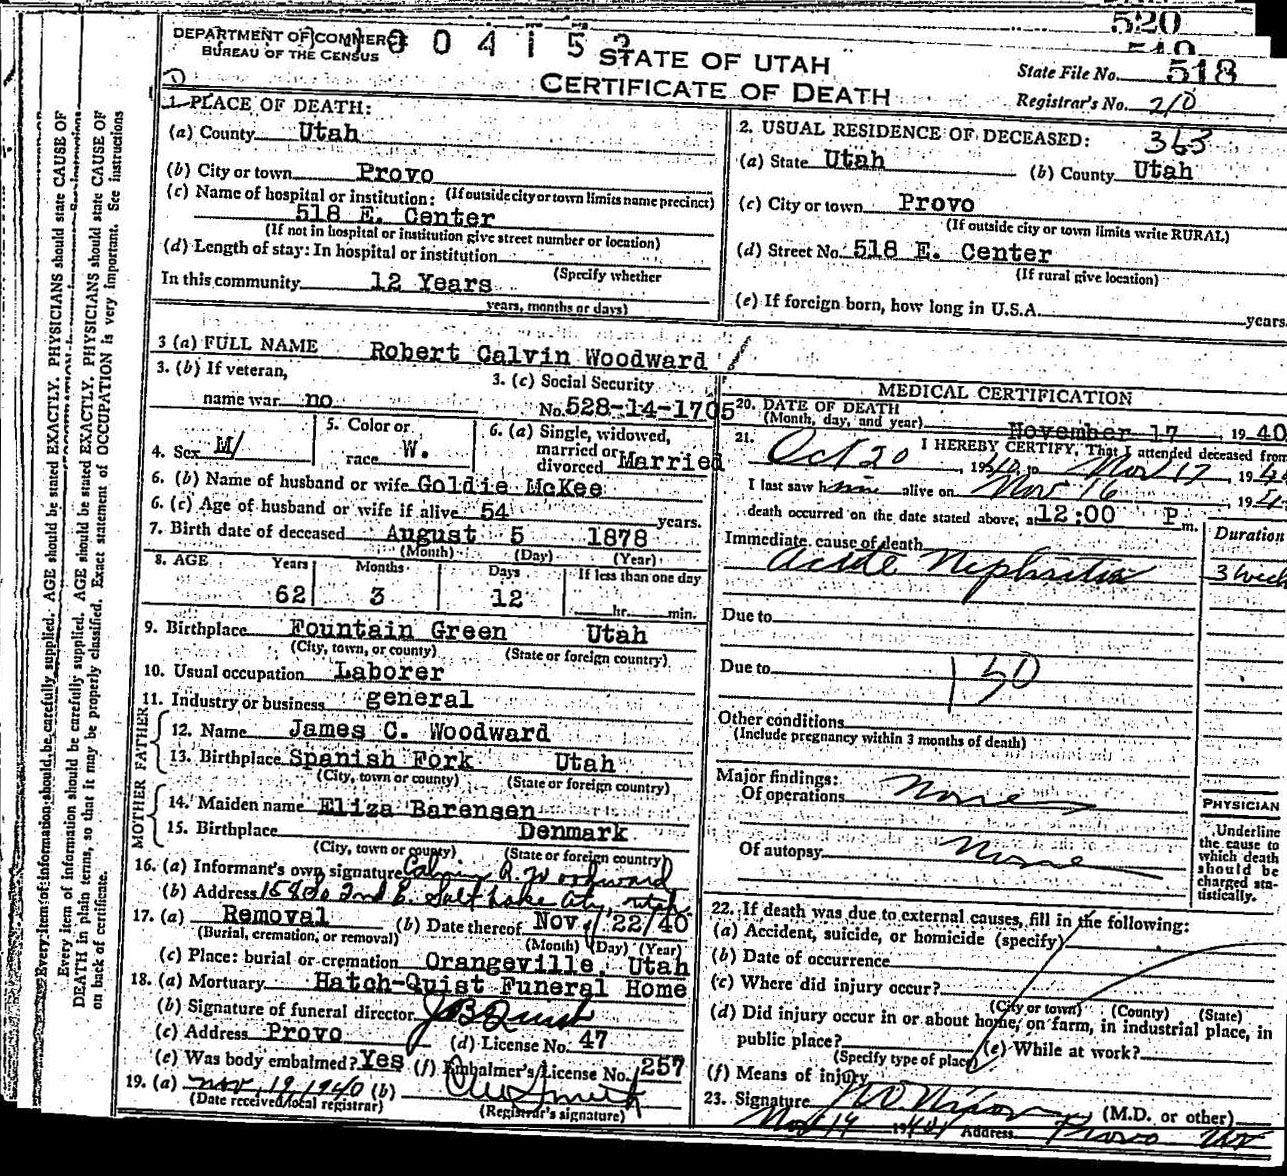 520
519
DEPARTMENT OF COMMERCE
BUREAU OF THE CENSUS
0 0 4 1 5 3
STATE OF UTAH
CERTIFICATE OF DEATH
State File No. 518
Registrar's No. 210
1. PLACE OF DEATH:
(a) County Utah
(b) City or town Provo
(If outside city or town limits name precinct)
(c) Name of hospital or institution:
518 E. Center
(If not in hospital or institution give street number or location)
(d) Length of stay: In hospital or institution
(Specify whether
In this community 12 Years
years, months or days)
2. USUAL RESIDENCE OF DECEASED: 363
(a) State Utah (b) County Utah
(c) City or town Provo
(If outside city or town limits write RURAL)
(d) Street No. 518 E. Center
(If rural give location)
(e) If foreign born, how long in U.S.A. years.
3 (a) FULL NAME Robert Calvin Woodward
3. (b) If veteran,
name war no
3. (c) Social Security
No. 528-14-1705
4. Sex M
5. Color or
race W.
6. (a) Single, widowed,
married or
divorced Married
6. (b) Name of husband or wife Goldie McKee
6. (c) Age of husband or wife if alive 54 years.
7. Birth date of deceased August 5 1878
(Month) (Day) (Year)
8. AGE Years Months Days If less than one day
62 3 12 hr. min.
9. Birthplace Fountain Green Utah
(City, town, or county) (State or foreign country)
10. Usual occupation Laborer
11. Industry or business general
FATHER
12. Name James C. Woodward
13. Birthplace Spanish Fork Utah
(City, town or county) (State or foreign country)
MOTHER
14. Maiden name Eliza Barensen
15. Birthplace Denmark
(City, town or county) (State or foreign country)
16. (a) Informant's own signature Calvin R. Woodward
(b) Address 2nd E. Salt Lake City, Utah
17. (a) Removal (b) Date thereof Nov/22/40
(Burial, cremation, or removal) (Month) (Day) (Year)
(c) Place: burial or cremation Orangeville, Utah
18. (a) Mortuary Hatch-Quist Funeral Home
(b) Signature of funeral director J B Quist
(c) Address Provo (d) License No. 47
(e) Was body embalmed? Yes (f) Embalmer's License No. 257
19. (a) Nov. 19 1940 (b)
(Date received local registrar) (Registrar's signature)
MEDICAL CERTIFICATION
20. DATE OF DEATH
(Month, day, and year) November 17 1940
21. I HEREBY CERTIFY, That I attended deceased from
Oct 20, 1940 to Nov 17 1940
I last saw him alive on Nov 16 194
death occurred on the date stated above, at 12:00 P m.
Immediate cause of death Duration
Acute Nephritis 3 week
Due to
Due to 130
Other conditions
(Include pregnancy within 3 months of death)
Major findings:
Of operations None
Of autopsy None
PHYSICIAN
Underline
the cause to
which death
should be
charged sta-
tistically.
22. If death was due to external causes, fill in the following:
(a) Accident, suicide, or homicide (specify)
(b) Date of occurrence
(c) Where did injury occur?
(City or town) (County) (State)
(d) Did injury occur in or about home, on farm, in industrial place, in
public place? (e) While at work?
(Specify type of place)
(f) Means of injury
23. Signature (M.D. or other)
Nov 19 Address Provo
Every item of information should be carefully supplied. AGE should be stated EXACTLY. PHYSICIANS should state CAUSE OF
Every item of information should be carefully supplied. AGE should be stated EXACTLY. PHYSICIANS should state CAUSE OF
DEATH in plain terms, so that it may be properly classified. Exact statement of OCCUPATION is very important. See instructions
on back of certificate.